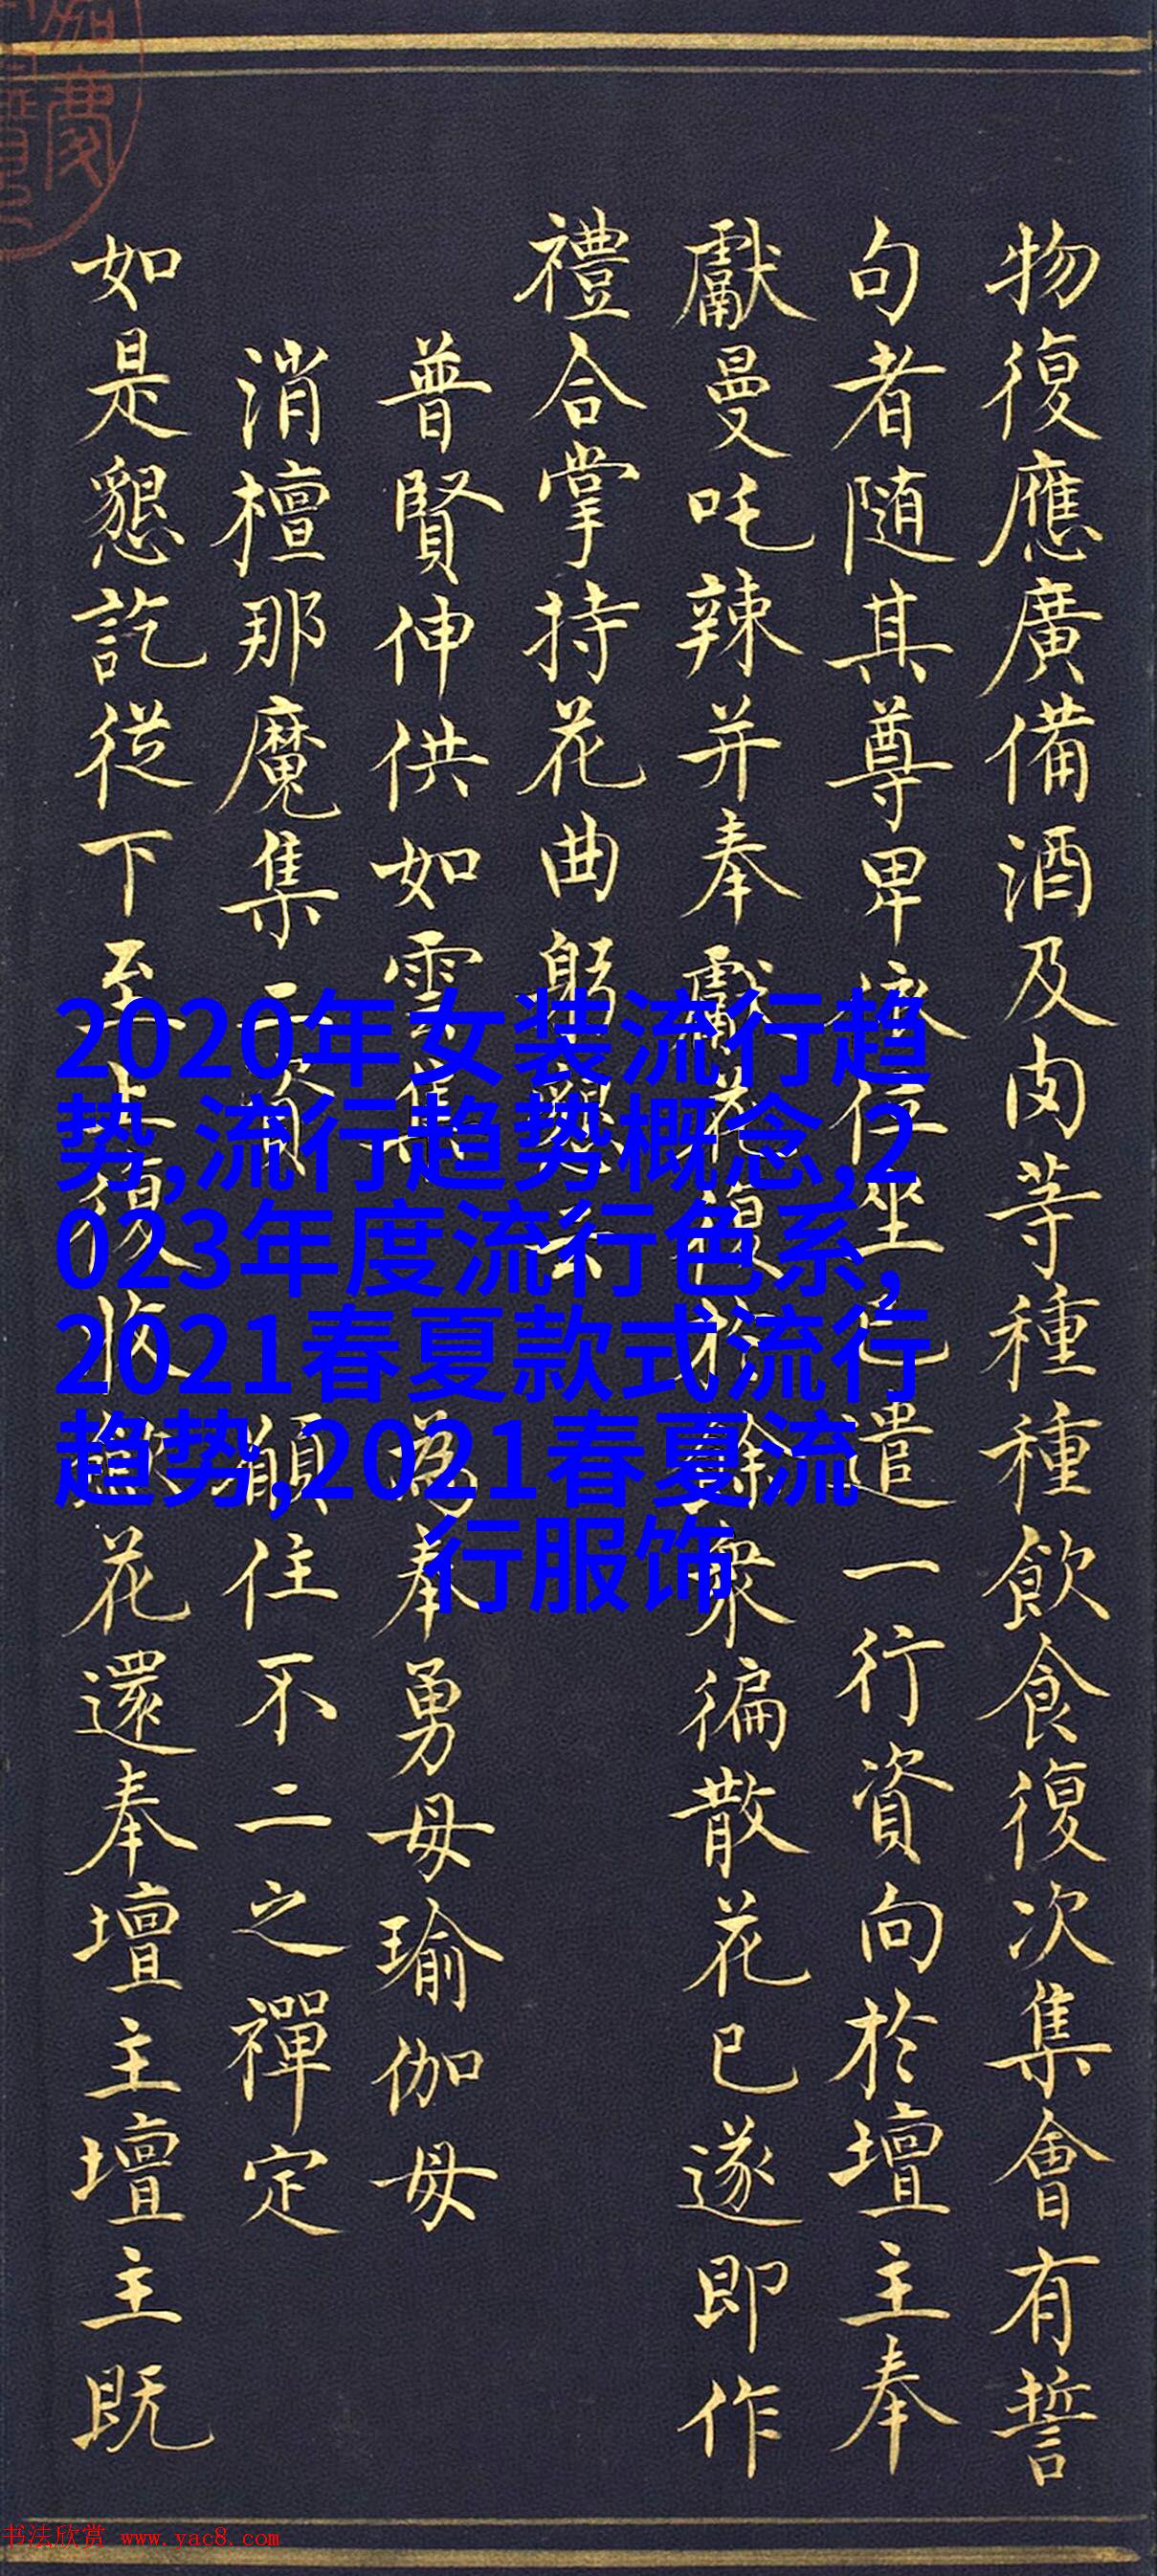 物復應廣備酒及肉等種種飲食復次集會有誓
句者随其尊卑依位坐已遣一行資向於壇主奉
獻曼吒辣并奉獻花復於餘衆徧散花已遂即作
禮合掌持花曲躬
普賢伸供如雲集 為奉勇母瑜伽母
消檀那魔集二資 願住不二之禪定
如是懇訖從下至上復收散花還奉壇主壇主既
2020年女装流行趋
势,流行趋势概念,2
023年度流行色系,
2021春夏款式流行
趋势,2021春夏流
行服饰
书法欣赏 www.yac8.com